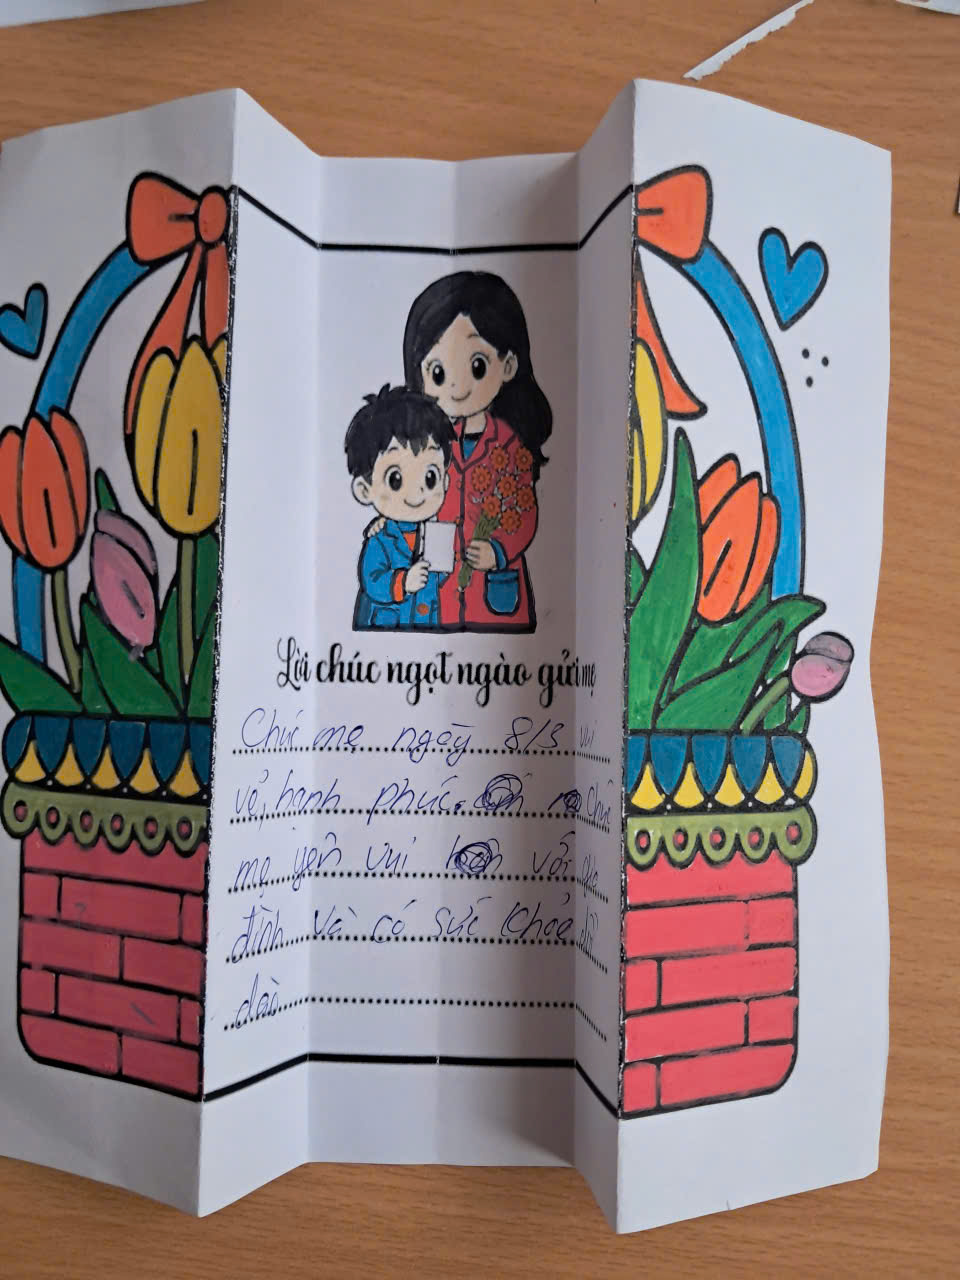 Lời chúc ngọt ngào gửi mẹ
Chúc mẹ ngày 8/3 vui
vẻ, hạnh phúc. chúc
mẹ yên vui với gia
đình và có sức khỏe dồi
dào